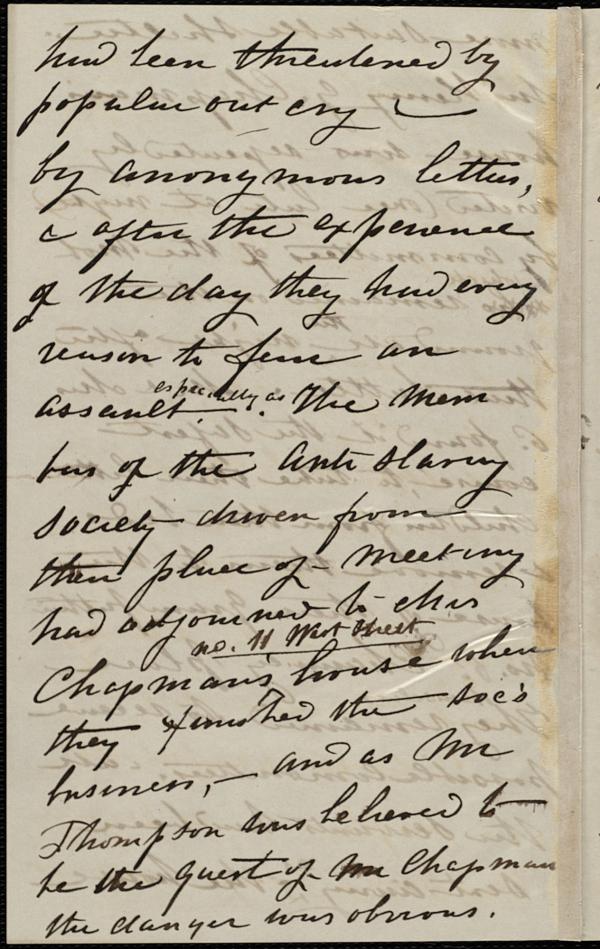 had been threatened by
popular out cry —
by anonymous letters,
& after the experience
of the day they had every
reason to fear an
especially as
assault. The Mem
bers of the Anti Slavery
society driven from
their place of meeting
had adjourned to Mrs
no. 11 West Street
Chapman's house where
they finished the soc's
business, — and as Mr
Thompson was believed to
be the guest of Mr Chapman
the danger was obvious.